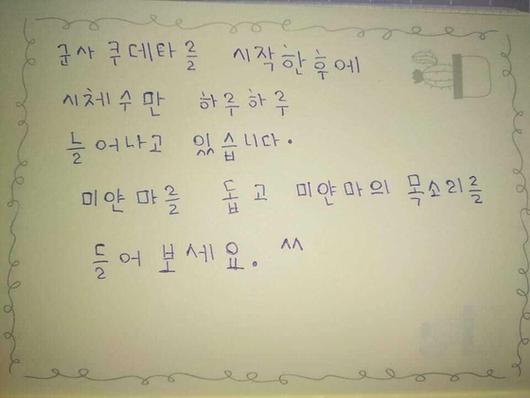 군사 쿠데타를 시작한 후에
시체 수만 하루하루
늘어나고 있습니다.
미얀마를 돕고 미얀마의 목소리를
들어 보세요. ^^